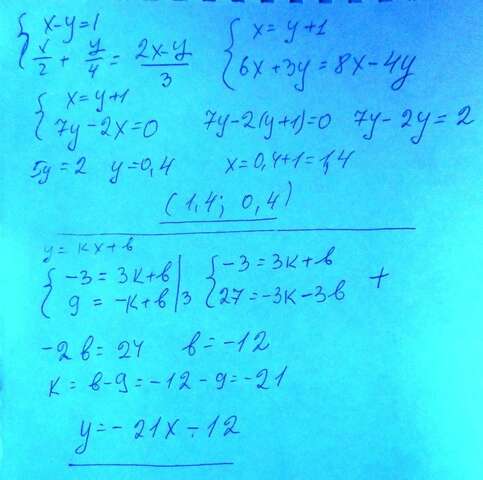 { x-y=1    { x = y+1
{ x/2 + y/4 = (2x-y)/3    { 6x+3y = 8x-4y
{ x=y+1
{ 7y-2x=0    7y-2(y+1)=0    7y-2y=2
5y=2    y=0,4    x=0,4+1=1,4
(1,4; 0,4)
y = kx+b
{ -3 = 3k+b |    { -3 = 3k+b    +
{ 9 = -k+b | 3    { 27 = -3k-3b
-2b = 24    b = -12
k = b-9 = -12-9 = -21
y = -21x-12